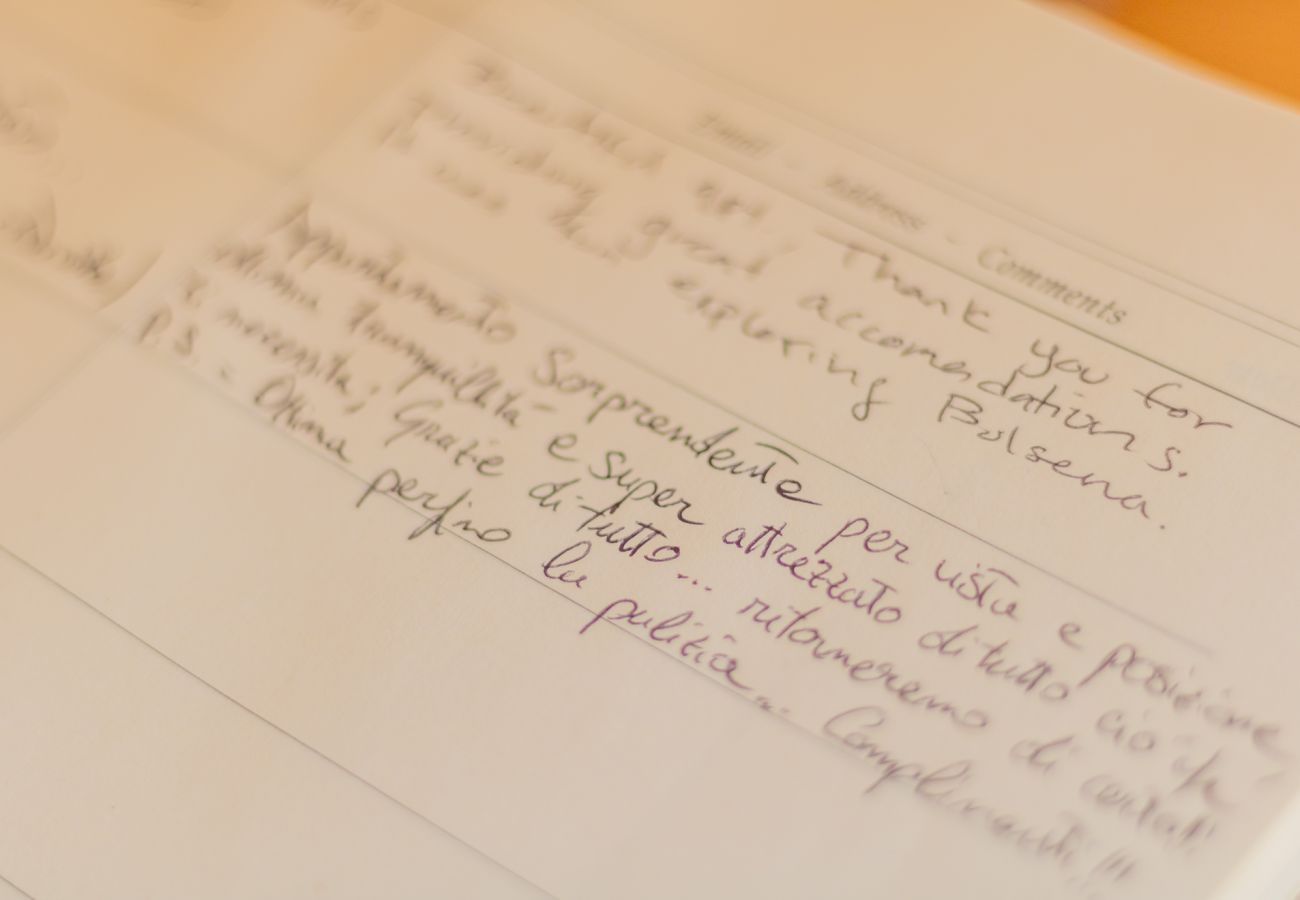 Email - Address - Comments
Thank you for
great accomendations.
exploring Bolsena.
Appartamento Sorprendente per vista e posizione
ottima tranquillità e super attrezzato di tutto ciò che
necessita; Grazie di tutto... ritorneremo di certo!!
P.S. - Ottima perfino la pulizia... Complimenti!!!